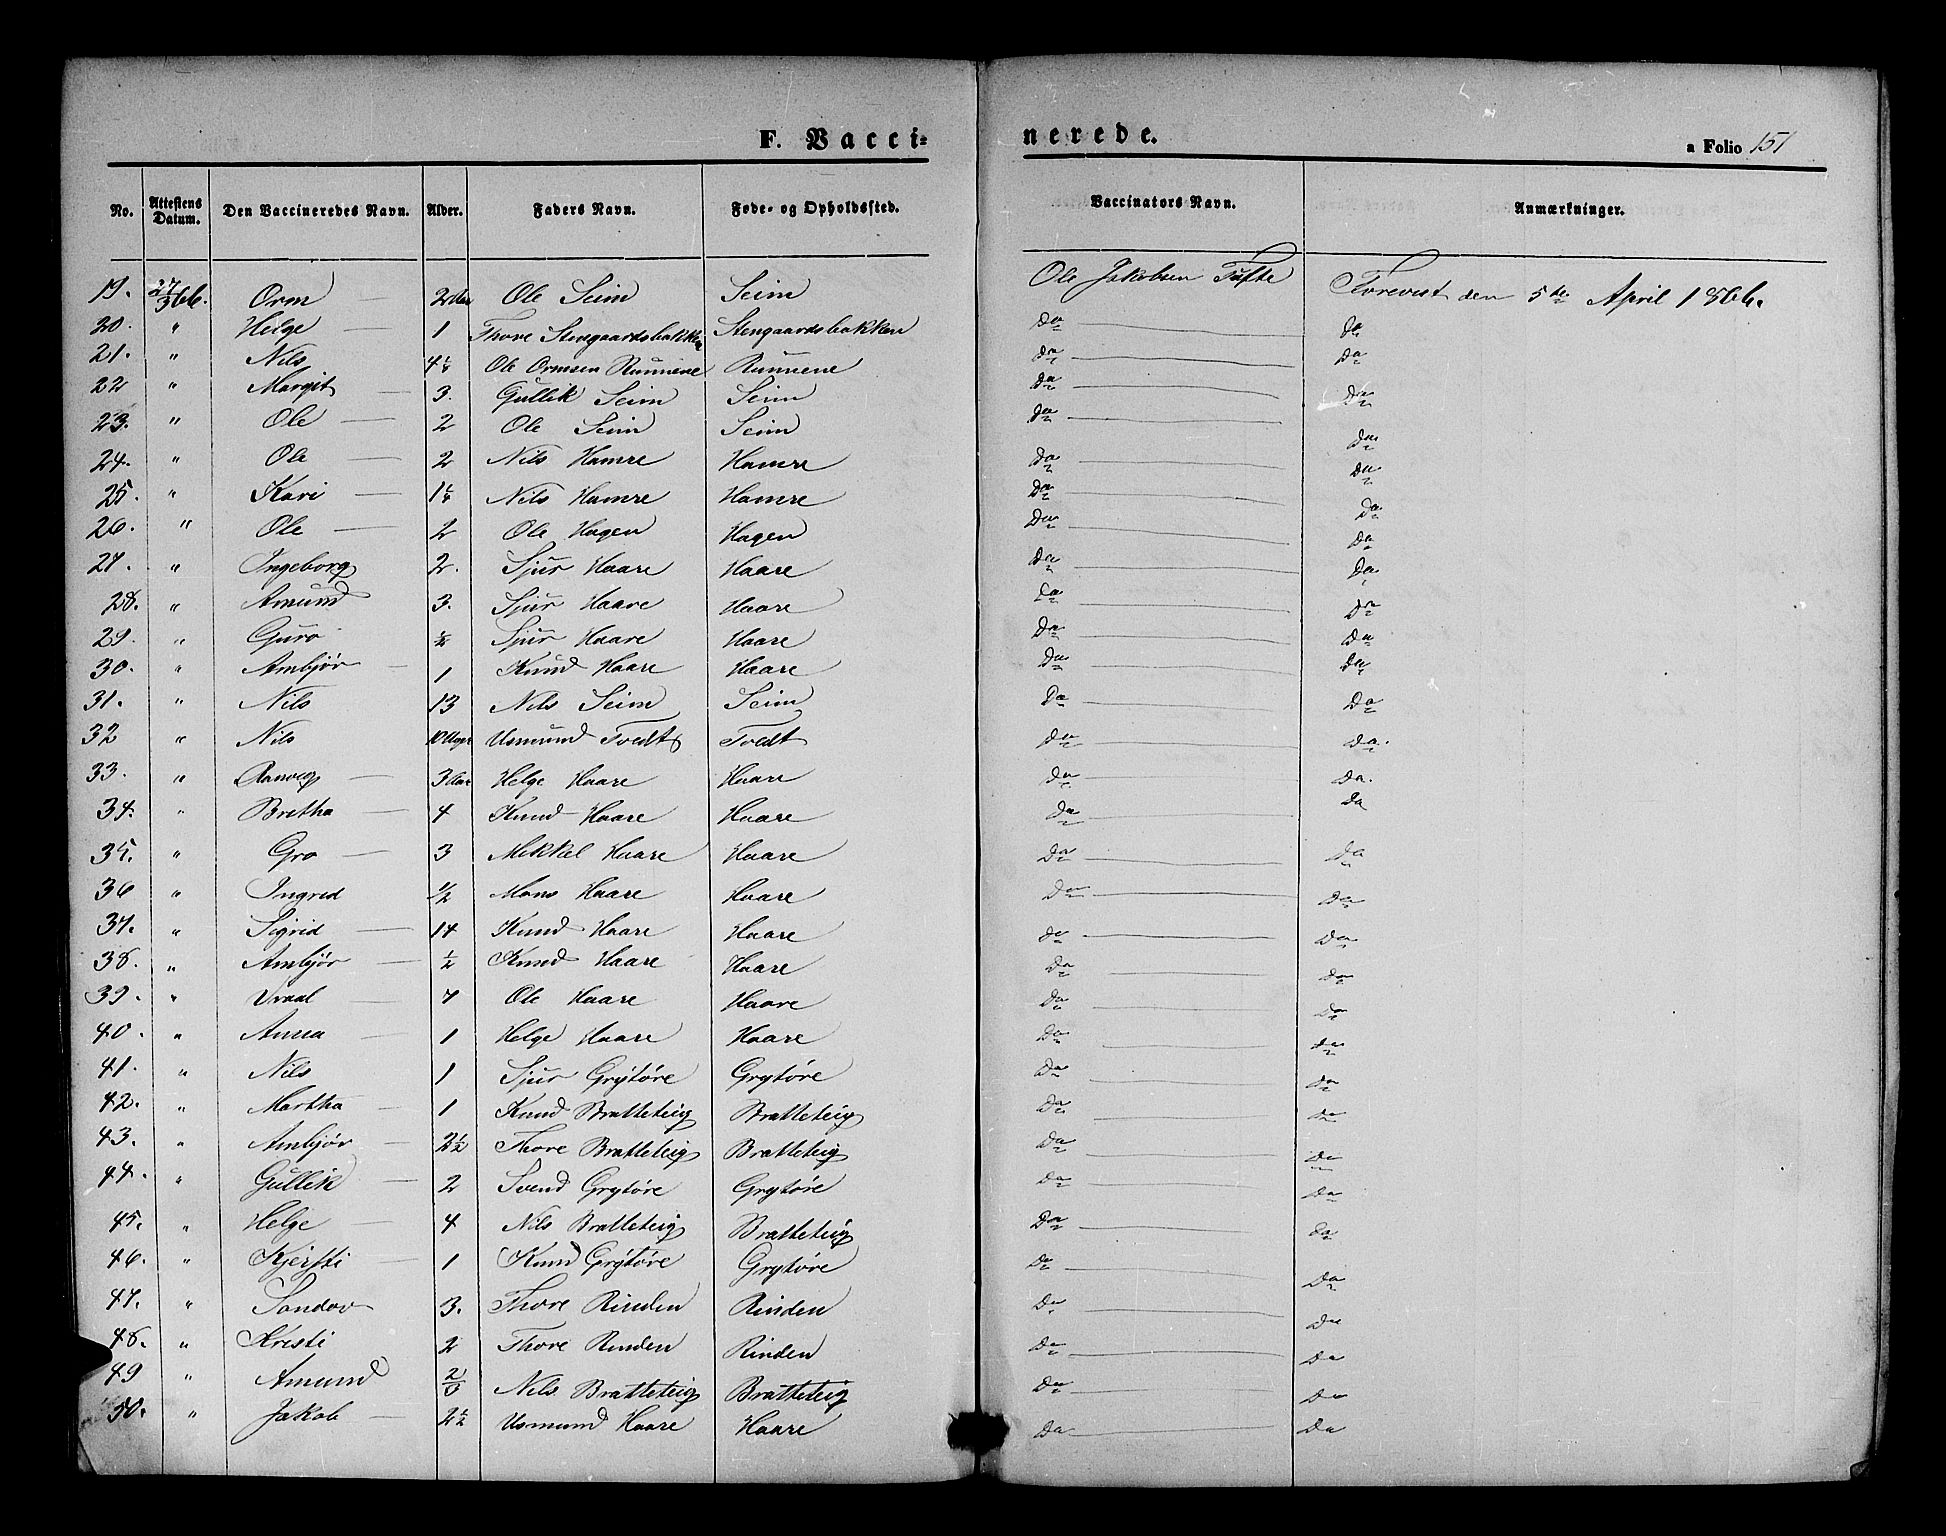 F. Vacci=
nerede.
a Folio 151
No. Attestens Datum. Den Vaccineredes Navn. Alder. Faders Navn. Føde= og Opholdssted. Vaccinators Navn. Anmærkninger.
19. 27/3 66. Orm 2 Aar Ole Seim Seim Ole Jakobsen Tufte Forevist den 5te April 1866.
20. " Helge 1 Thore Stengaardsbakken Stengaardsbakken Do Do
21. " Nils 4¼ Ole Ormsen Runnene Runnene Do Do
22 " Margit 3. Gullik Seim Seim Do Do
23. " Ole 2 Ole Seim Seim Do Do
24. " Ole 2 Nils Hamre Hamre Do Do
25. " Kari 1¼ Nils Hamre Hamre Do Do
26. " Ole 2 Ole Hagen Hagen Do Do
27. " Ingeborg 2. Sjur Haare Haare Do Do
28. " Amund 3. Sjur Haare Haare Do Do
29. " Guro ½ Sjur Haare Haare Do Do
30. " Ambjør 1 Knud Haare Haare Do Do
31. " Nils 13 Nils Seim Seim Do Do
32 " Nils 10 Uger Usmund Tvedt Tvedt Do Do.
33. " Ranveg 3 Aar Helge Haare Haare Do Do.
34. " Bretha 4 Knud Haare Haare Do Do
35. " Gro 3 Mikkel Haare Haare Do Do
36 " Ingrid ½ Mons Haare Haare Do Do
37. " Sigrid 14 Knud Haare Haare Do Do
38. " Ambjør ½ Knud Haare Haare Do Do
39. " Ivaal 7 Ole Haare Haare Do Do
40. " Anna 1 Helge Haare Haare Do Do
41. " Nils 1 Sjur Grytøre Grytøre Do Do
42. " Martha 1 Knud Bratteteig Bratteteig Do Do
43. " Ambjør 2½ Thore Bratteteig Bratteteig Do Do
44. " Gullik 2 Svend Grytøre Grytøre Do Do
45. " Helge 4 Nils Bratteteig Bratteteig Do Do
46. " Kjersti 1 Knud Grytøre Grytøre Do Do
47. " Sondov 3. Thore Rinden Rinden Do Do
48. " Kristi 2 Thore Rinden Rinden Do Do
49 " Amund 2/3 Nils Bratteteig Bratteteig Do Do
50. " Jakob 2½ Usmund Haare Haare Do Do